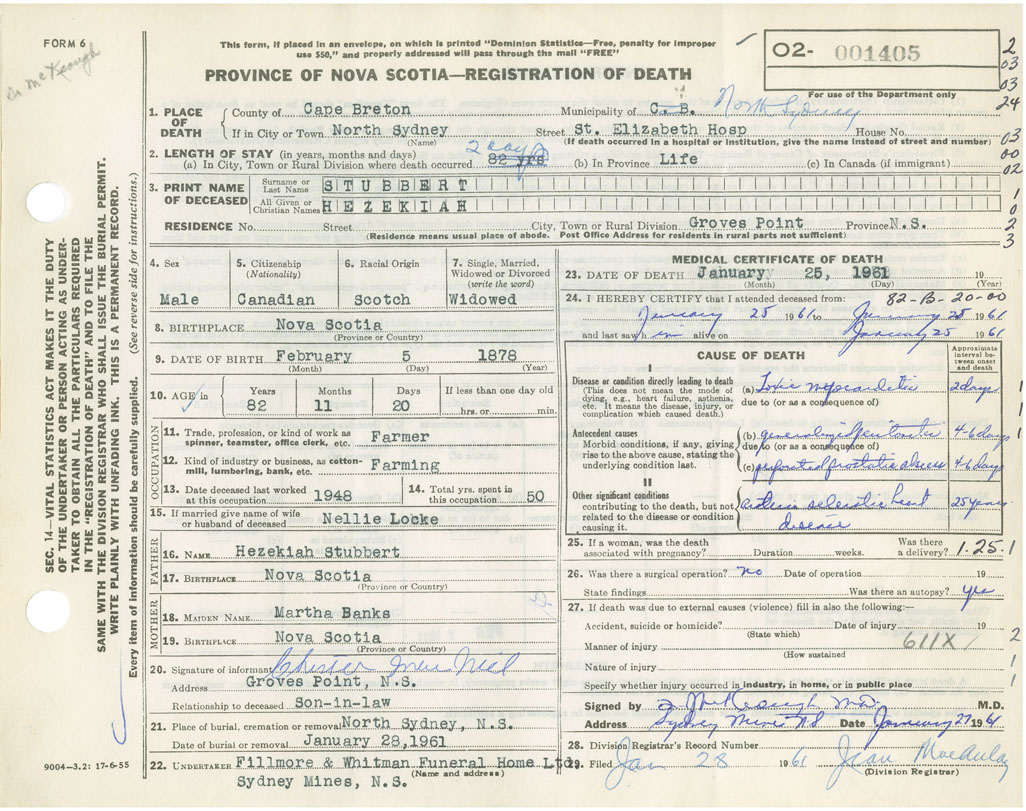 FORM 6
Dr McKeough
This form, if placed in an envelope, on which is printed "Dominion Statistics—Free, penalty for improper
use $50," and properly addressed will pass through the mail "FREE"
PROVINCE OF NOVA SCOTIA—REGISTRATION OF DEATH
02- 001405
For use of the Department only
2
03
03
24
03
00
02
1
0
2
3
1. PLACE OF DEATH
County of Cape Breton Municipality of C. B. North Sydney
If in City or Town North Sydney Street St. Elizabeth Hosp House No.
(Name) (If death occurred in a hospital or institution, give the name instead of street and number)
2. LENGTH OF STAY (in years, months and days) 2 days
(a) In City, Town or Rural Division where death occurred 82 yrs (b) In Province Life (c) In Canada (if immigrant)
3. PRINT NAME OF DECEASED
Surname or Last Name STUBBERT
All Given or Christian Names HEZEKIAH
RESIDENCE No. Street City, Town or Rural Division Groves Point Province N.S.
(Residence means usual place of abode. Post Office Address for residents in rural parts not sufficient)
4. Sex
Male
5. Citizenship
(Nationality)
Canadian
6. Racial Origin
Scotch
7. Single, Married,
Widowed or Divorced
(write the word)
Widowed
8. BIRTHPLACE Nova Scotia
(Province or Country)
9. DATE OF BIRTH February 5 1878
(Month) (Day) (Year)
10. AGE in
Years Months Days If less than one day old
82 11 20 hrs. or min.
OCCUPATION
11. Trade, profession, or kind of work as
spinner, teamster, office clerk, etc. Farmer
12. Kind of industry or business, as cotton-
mill, lumbering, bank, etc. Farming
13. Date deceased last worked
at this occupation 1948
14. Total yrs. spent in
this occupation 50
15. If married give name of wife
or husband of deceased Nellie Locke
FATHER
16. NAME Hezekiah Stubbert
17. BIRTHPLACE Nova Scotia
(Province or Country)
MOTHER
18. MAIDEN NAME Martha Banks
19. BIRTHPLACE Nova Scotia
(Province or Country)
20. Signature of informant Chester MacNeil
Address Groves Point, N.S.
Relationship to deceased Son-in-law
21. Place of burial, cremation or removal North Sydney, N.S.
Date of burial or removal January 28,1961
22. UNDERTAKER Fillmore & Whitman Funeral Home Ltd.
(Name and address)
Sydney Mines, N.S.
MEDICAL CERTIFICATE OF DEATH
23. DATE OF DEATH January 25, 1961 19
(Month) (Day) (Year)
24. I HEREBY CERTIFY that I attended deceased from: 82-B-20-00
January 25 1961 to January 25 1961
and last saw him alive on January 25 1961
CAUSE OF DEATH
Approximate interval between onset and death
I
Disease or condition directly leading to death
(This does not mean the mode of
dying, e.g., heart failure, asthenia,
etc. It means the disease, injury, or
complication which caused death.)
(a) Toxic myocarditis 2 days
due to (or as a consequence of)
Antecedent causes
Morbid conditions, if any, giving
rise to the above cause, stating the
underlying condition last.
(b) generalized peritonitis 4-6 days
due to (or as a consequence of)
(c) perforated prostatic abscess 4-6 days
II
Other significant conditions
contributing to the death, but not
related to the disease or condition
causing it.
arterio sclerotic heart
disease
25 years
25. If a woman, was the death
associated with pregnancy? Duration weeks. Was there
a delivery? 1.25.1
26. Was there a surgical operation? no Date of operation 19
State findings Was there an autopsy? yes
27. If death was due to external causes (violence) fill in also the following:—
Accident, suicide or homicide? Date of injury 19
(State which)
Manner of injury 611X
(How sustained
Nature of injury
Specify whether injury occurred in industry, in home, or in public place
Signed by McKeough M.D. M.D.
Address Sydney Mines NS Date January 27 1961
28. Division Registrar's Record Number
29. Filed Jan 28 1961 Jean MacAulay
(Division Registrar)
SEC. 14—VITAL STATISTICS ACT MAKES IT THE DUTY
OF THE UNDERTAKER OR PERSON ACTING AS UNDER-
TAKER TO OBTAIN ALL THE PARTICULARS REQUIRED
IN THE "REGISTRATION OF DEATH" AND TO FILE THE
SAME WITH THE DIVISION REGISTRAR WHO SHALL ISSUE THE BURIAL PERMIT.
WRITE PLAINLY WITH UNFADING INK. THIS IS A PERMANENT RECORD.
Every item of information should be carefully supplied. (See reverse side for instructions.)
9004—3.2: 17-6-55